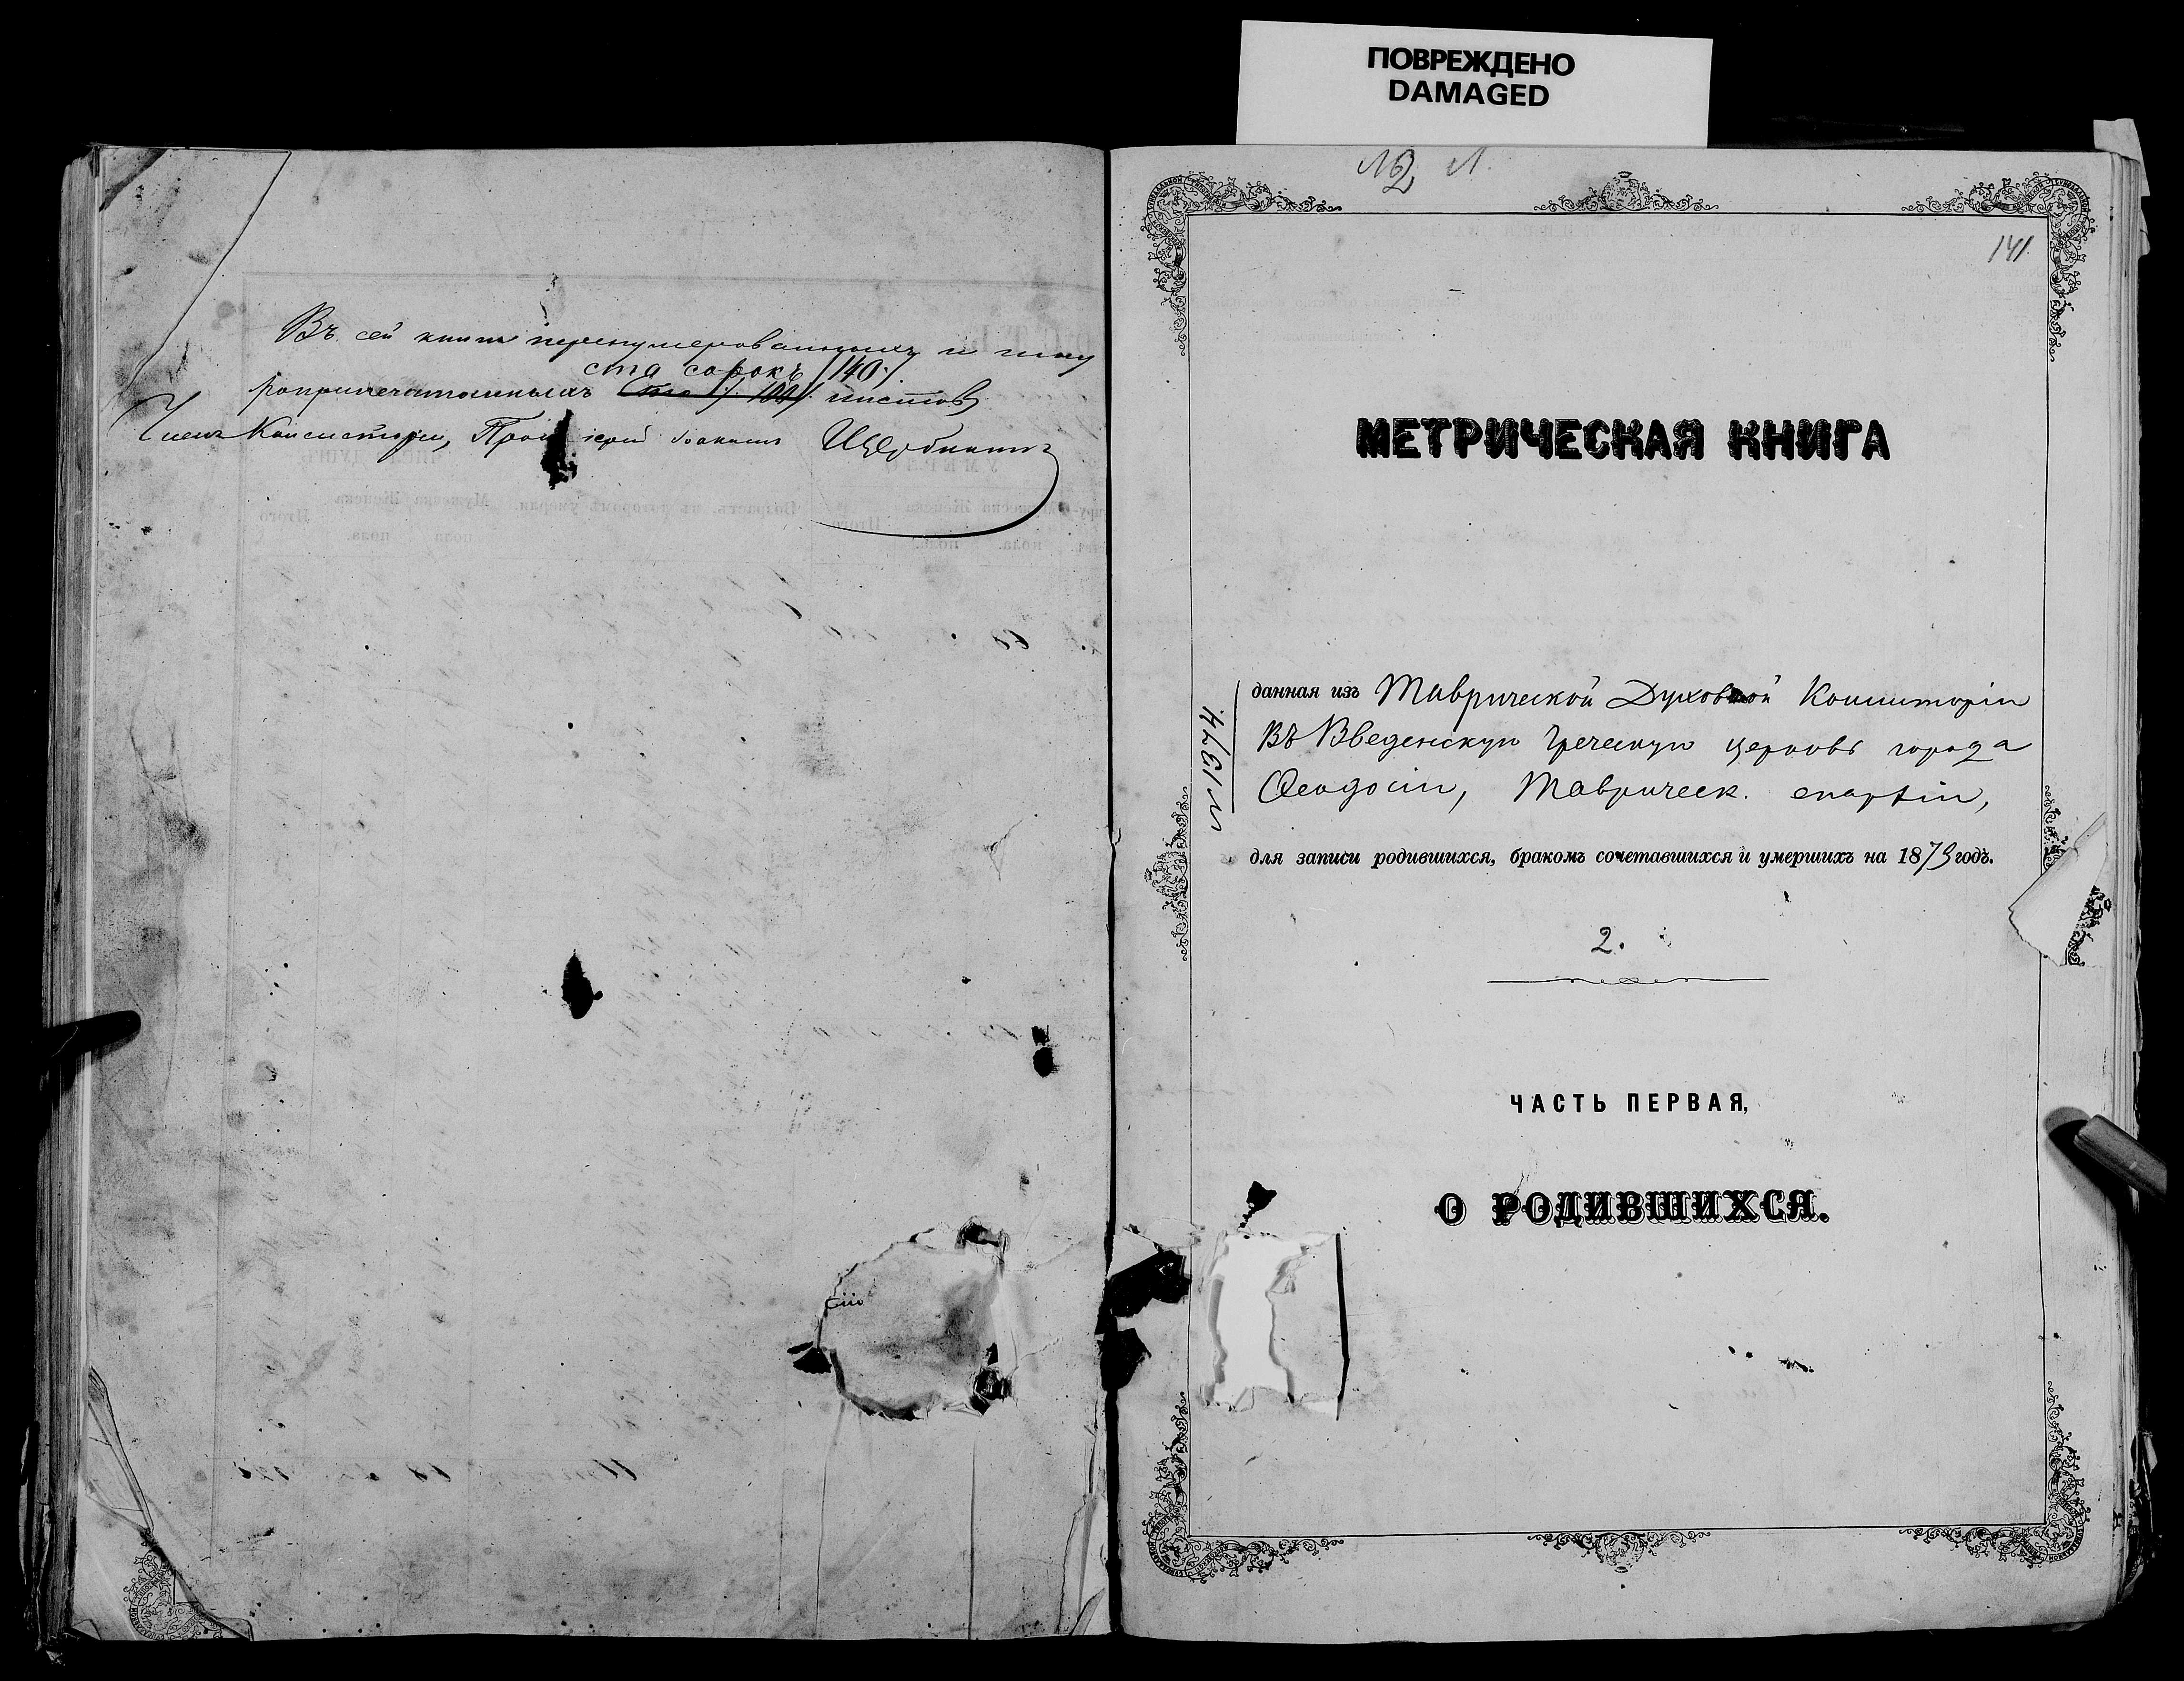 ПОВРЕЖДЕНО
DAMAGED
Въ сей книгѣ перенумерованныхъ и шну
роприпечатанныхъ ста сорокъ /140./ листовъ
Членъ Консисторіи, Протоіерей Іоакимъ Щербининъ
141.
МЕТРИЧЕСКАЯ КНИГА
данная изъ Таврической Духовной Консисторіи
въ Введенскую Греческую церковь города
Ѳеодосіи, Таврическ. епархіи,
для записи родившихся, бракомъ сочетавшихся и умершихъ на 1873 годъ.
2.
ЧАСТЬ ПЕРВАЯ,
О РОДИВШИХСЯ.